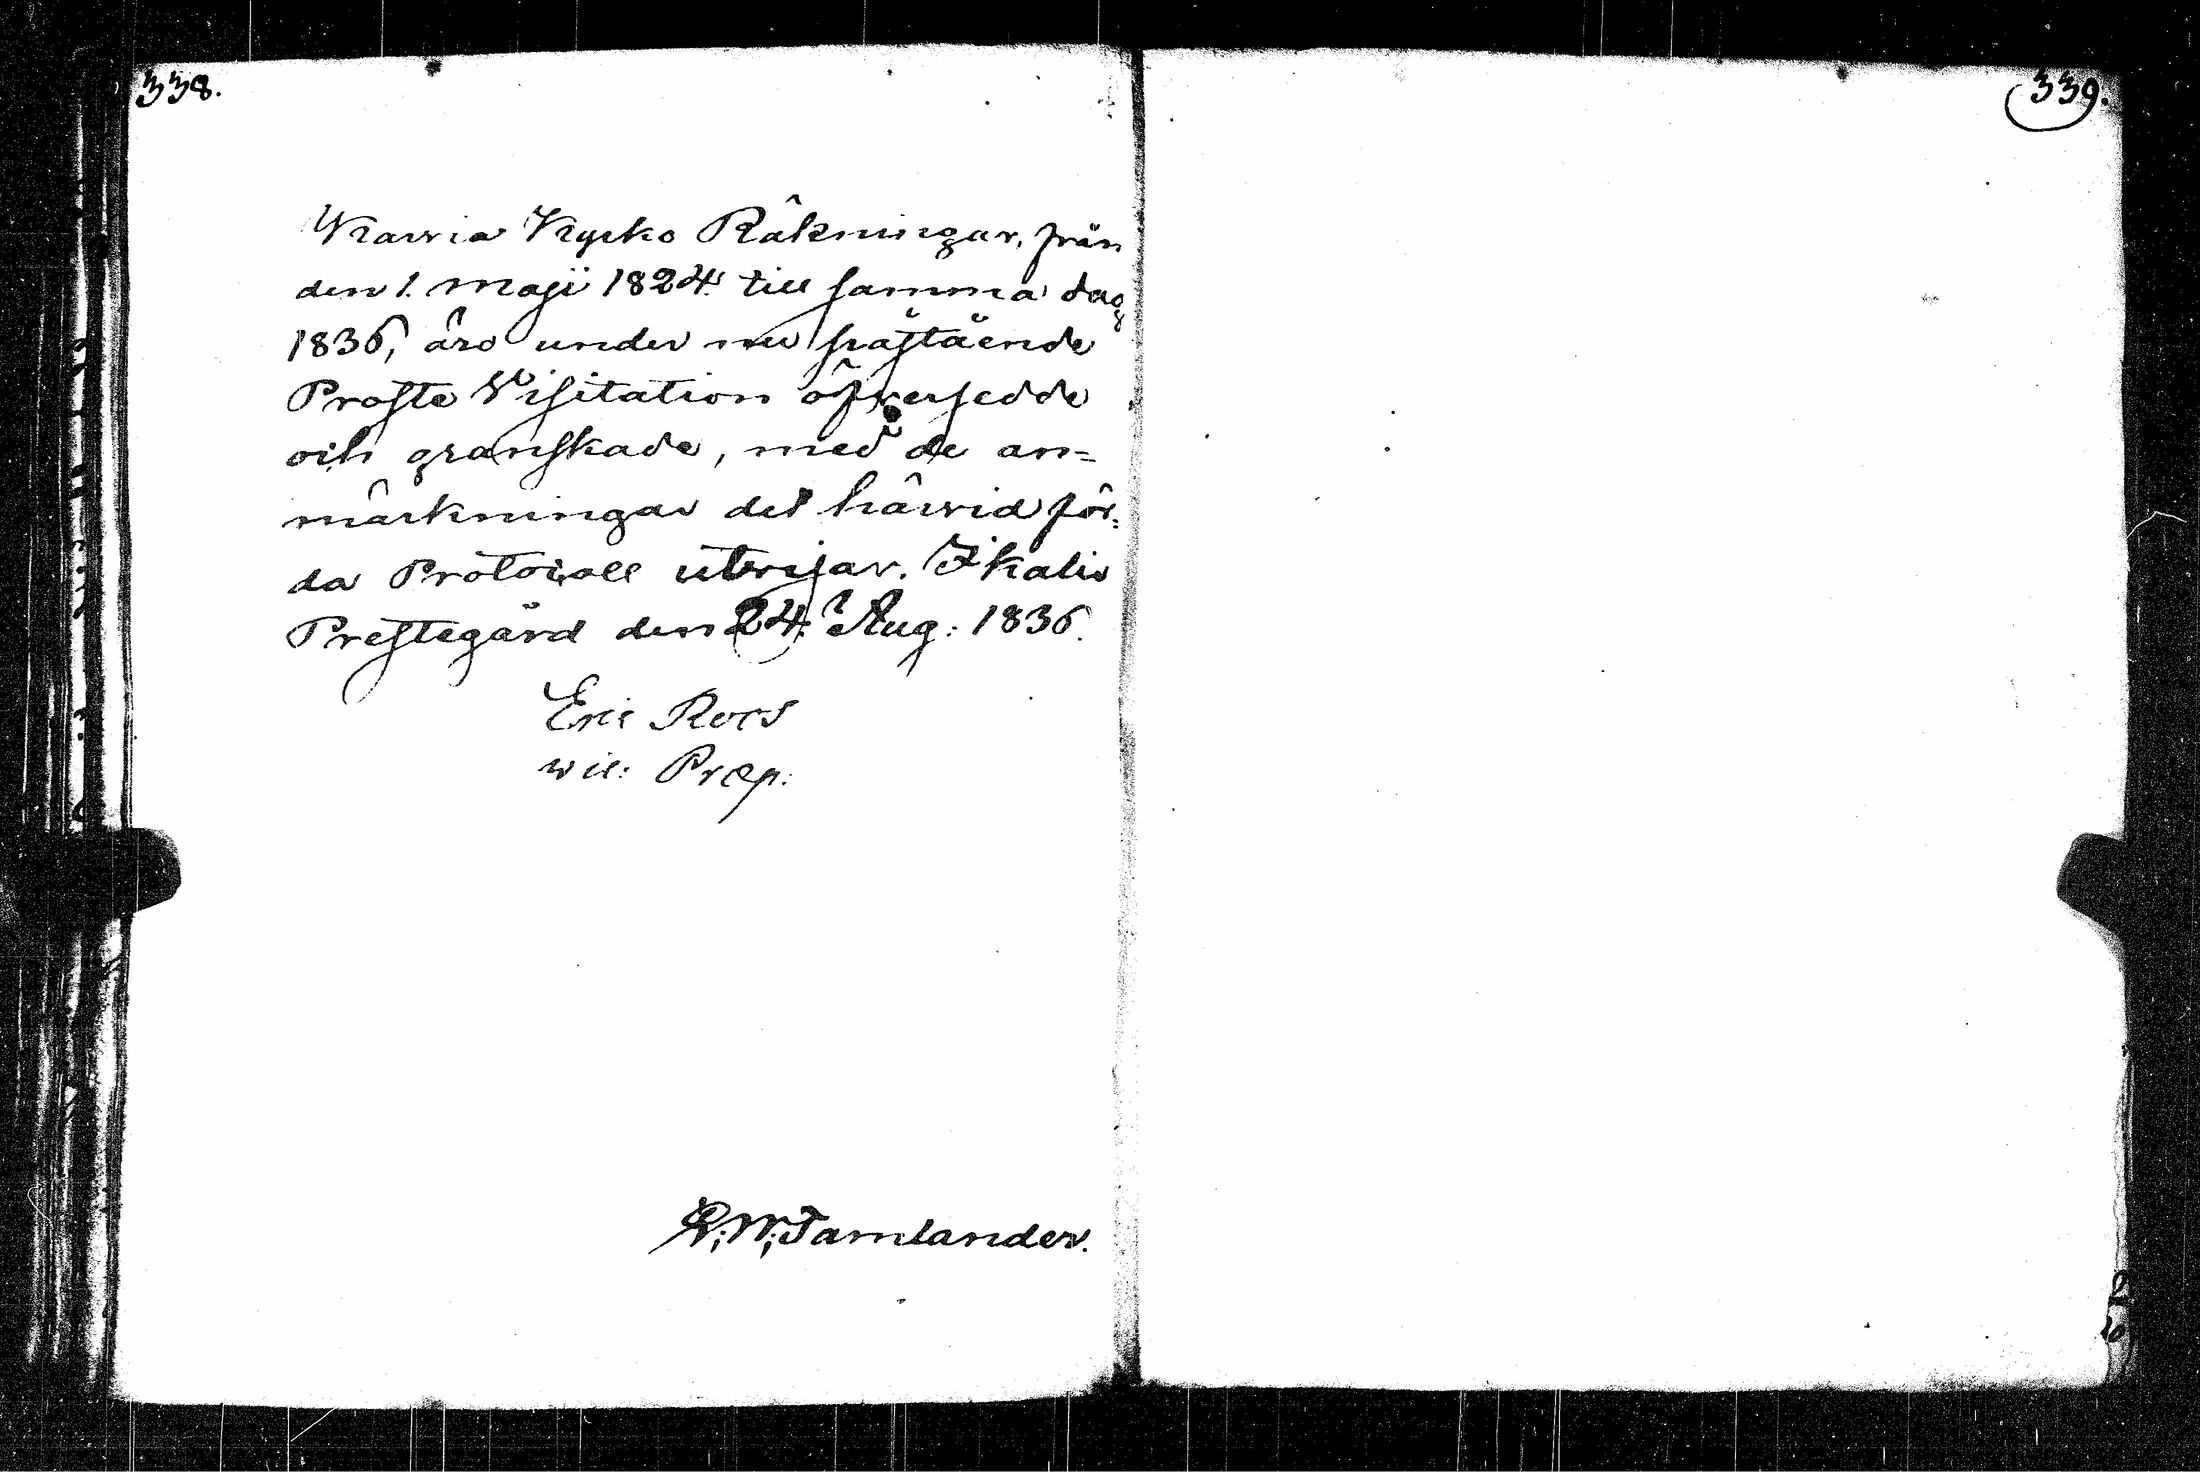 338.
339.
Karvia Kyrko Räkningar, från
den 1. Maji 1824. till samma dag
1836, äro under nu påstående
Proste Visitation öfversedde
och granskade, med de an=
märkningar det härvid för=
da Protocoll utvisar. Ikalis
Prestegård den 24. Aug: 1836.
Eric Roos
vic: Præp:
W; Tamlander.